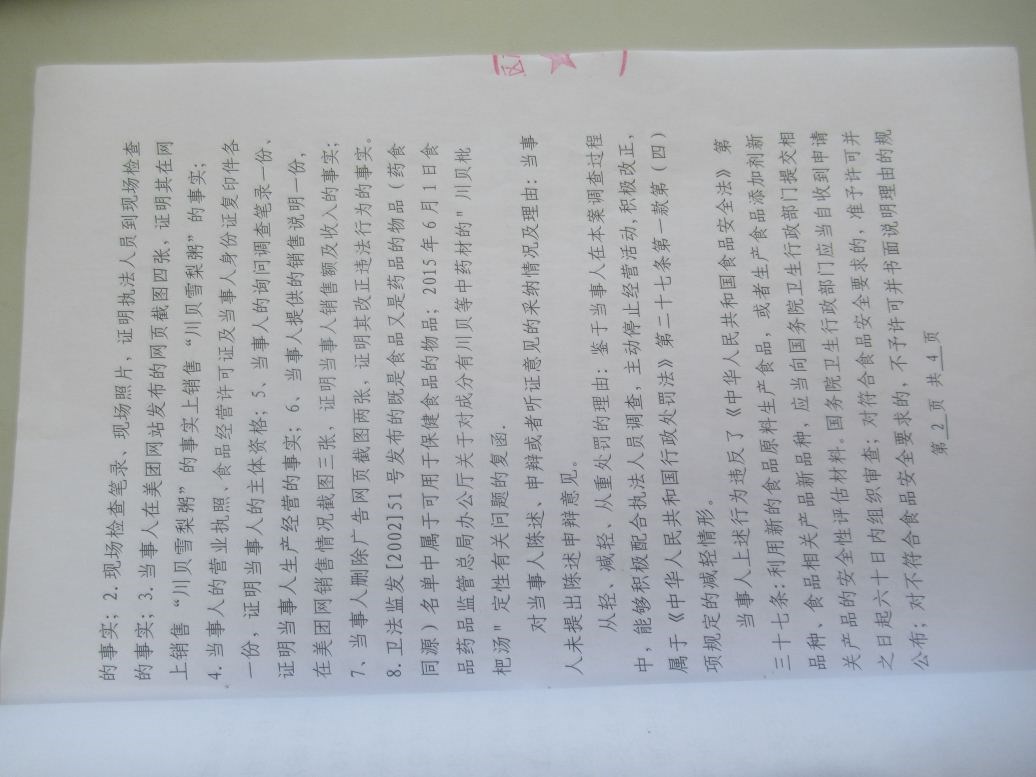 的事实；2.现场检查笔录、现场照片，证明执法人员到现场检查
的事实；3.当事人在美团网站发布的网页截图四张，证明其在网
上销售“川贝雪梨粥”的事实上销售“川贝雪梨粥”的事实；
4.当事人的营业执照、食品经营许可证及当事人身份证复印件各
一份，证明当事人的主体资格；5、当事人的询问调查笔录一份、
证明当事人生产经营的事实；6、当事人提供的销售说明一份，
在美团网销售情况截图三张，证明当事人销售额及收入的事实；
7、当事人删除广告网页截图两张，证明其改正违法行为的事实。
8.卫法监发[2002]51号发布的既是食品又是药品的物品（药食
同源）名单中属于可用于保健食品的物品；2015年6月1日食
品药品监管总局办公厅关于对成分有川贝等中药材的"川贝枇
杷汤"定性有关问题的复函.
对当事人陈述、申辩或者听证意见的采纳情况及理由：当事
人未提出陈述申辩意见。
从轻、减轻、从重处罚的理由：鉴于当事人在本案调查过程
中，能够积极配合执法人员调查，主动停止经营活动，积极改正，
属于《中华人民共和国行政处罚法》第二十七条第一款第（四）
项规定的减轻情形。
当事人上述行为违反了《中华人民共和国食品安全法》第
三十七条：利用新的食品原料生产食品，或者生产食品添加剂新
品种、食品相关产品新品种，应当向国务院卫生行政部门提交相
关产品的安全性评估材料。国务院卫生行政部门应当自收到申请
之日起六十日内组织审查；对符合食品安全要求的，准予许可并
公布；对不符合食品安全要求的，不予许可并书面说明理由的规
第 2 页 共 4 页
区